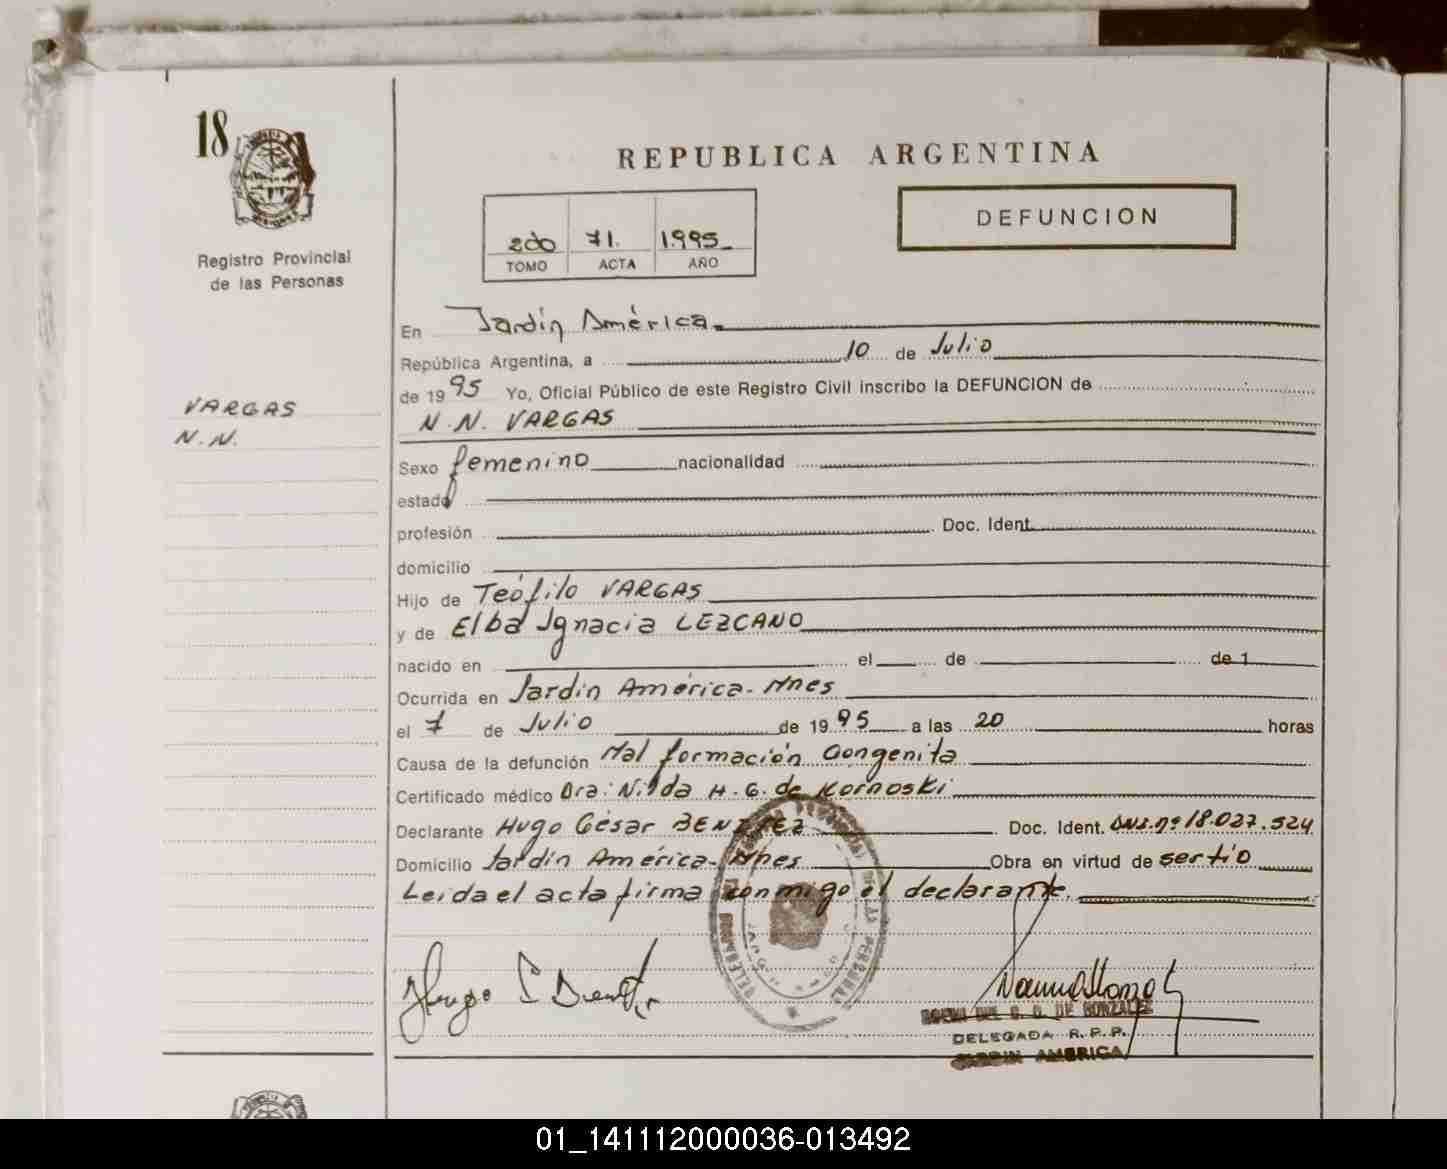 18
Registro Provincial
de las Personas
VARGAS
N.N.
REPUBLICA ARGENTINA
2do 71. 1.995
TOMO ACTA AÑO
DEFUNCION
En Jardín América.
República Argentina, a 10 de Julio
de 1995 Yo, Oficial Público de este Registro Civil inscribo la DEFUNCION de
N.N. VARGAS
Sexo femenino nacionalidad
estado
profesión Doc. Ident.
domicilio
Hijo de Teófilo VARGAS
y de Elba Ignacia LEZCANO
nacido en el de de 1
Ocurrida en Jardín América-Mnes
el 7 de Julio de 1995 a las 20 horas
Causa de la defunción Mal formación Congenita
Certificado médico Dra: Nilda H. G. de Kornoski
Declarante Hugo César BENITEZ Doc. Ident. DNI.nº 18.027.524
Domicilio Jardín América-Mnes Obra en virtud de sertio
Leida el acta firma conmigo el declarante.
DE GONZALEZ
DELEGADA R.P.P.
JARDIN AMERICA
01_141112000036-013492